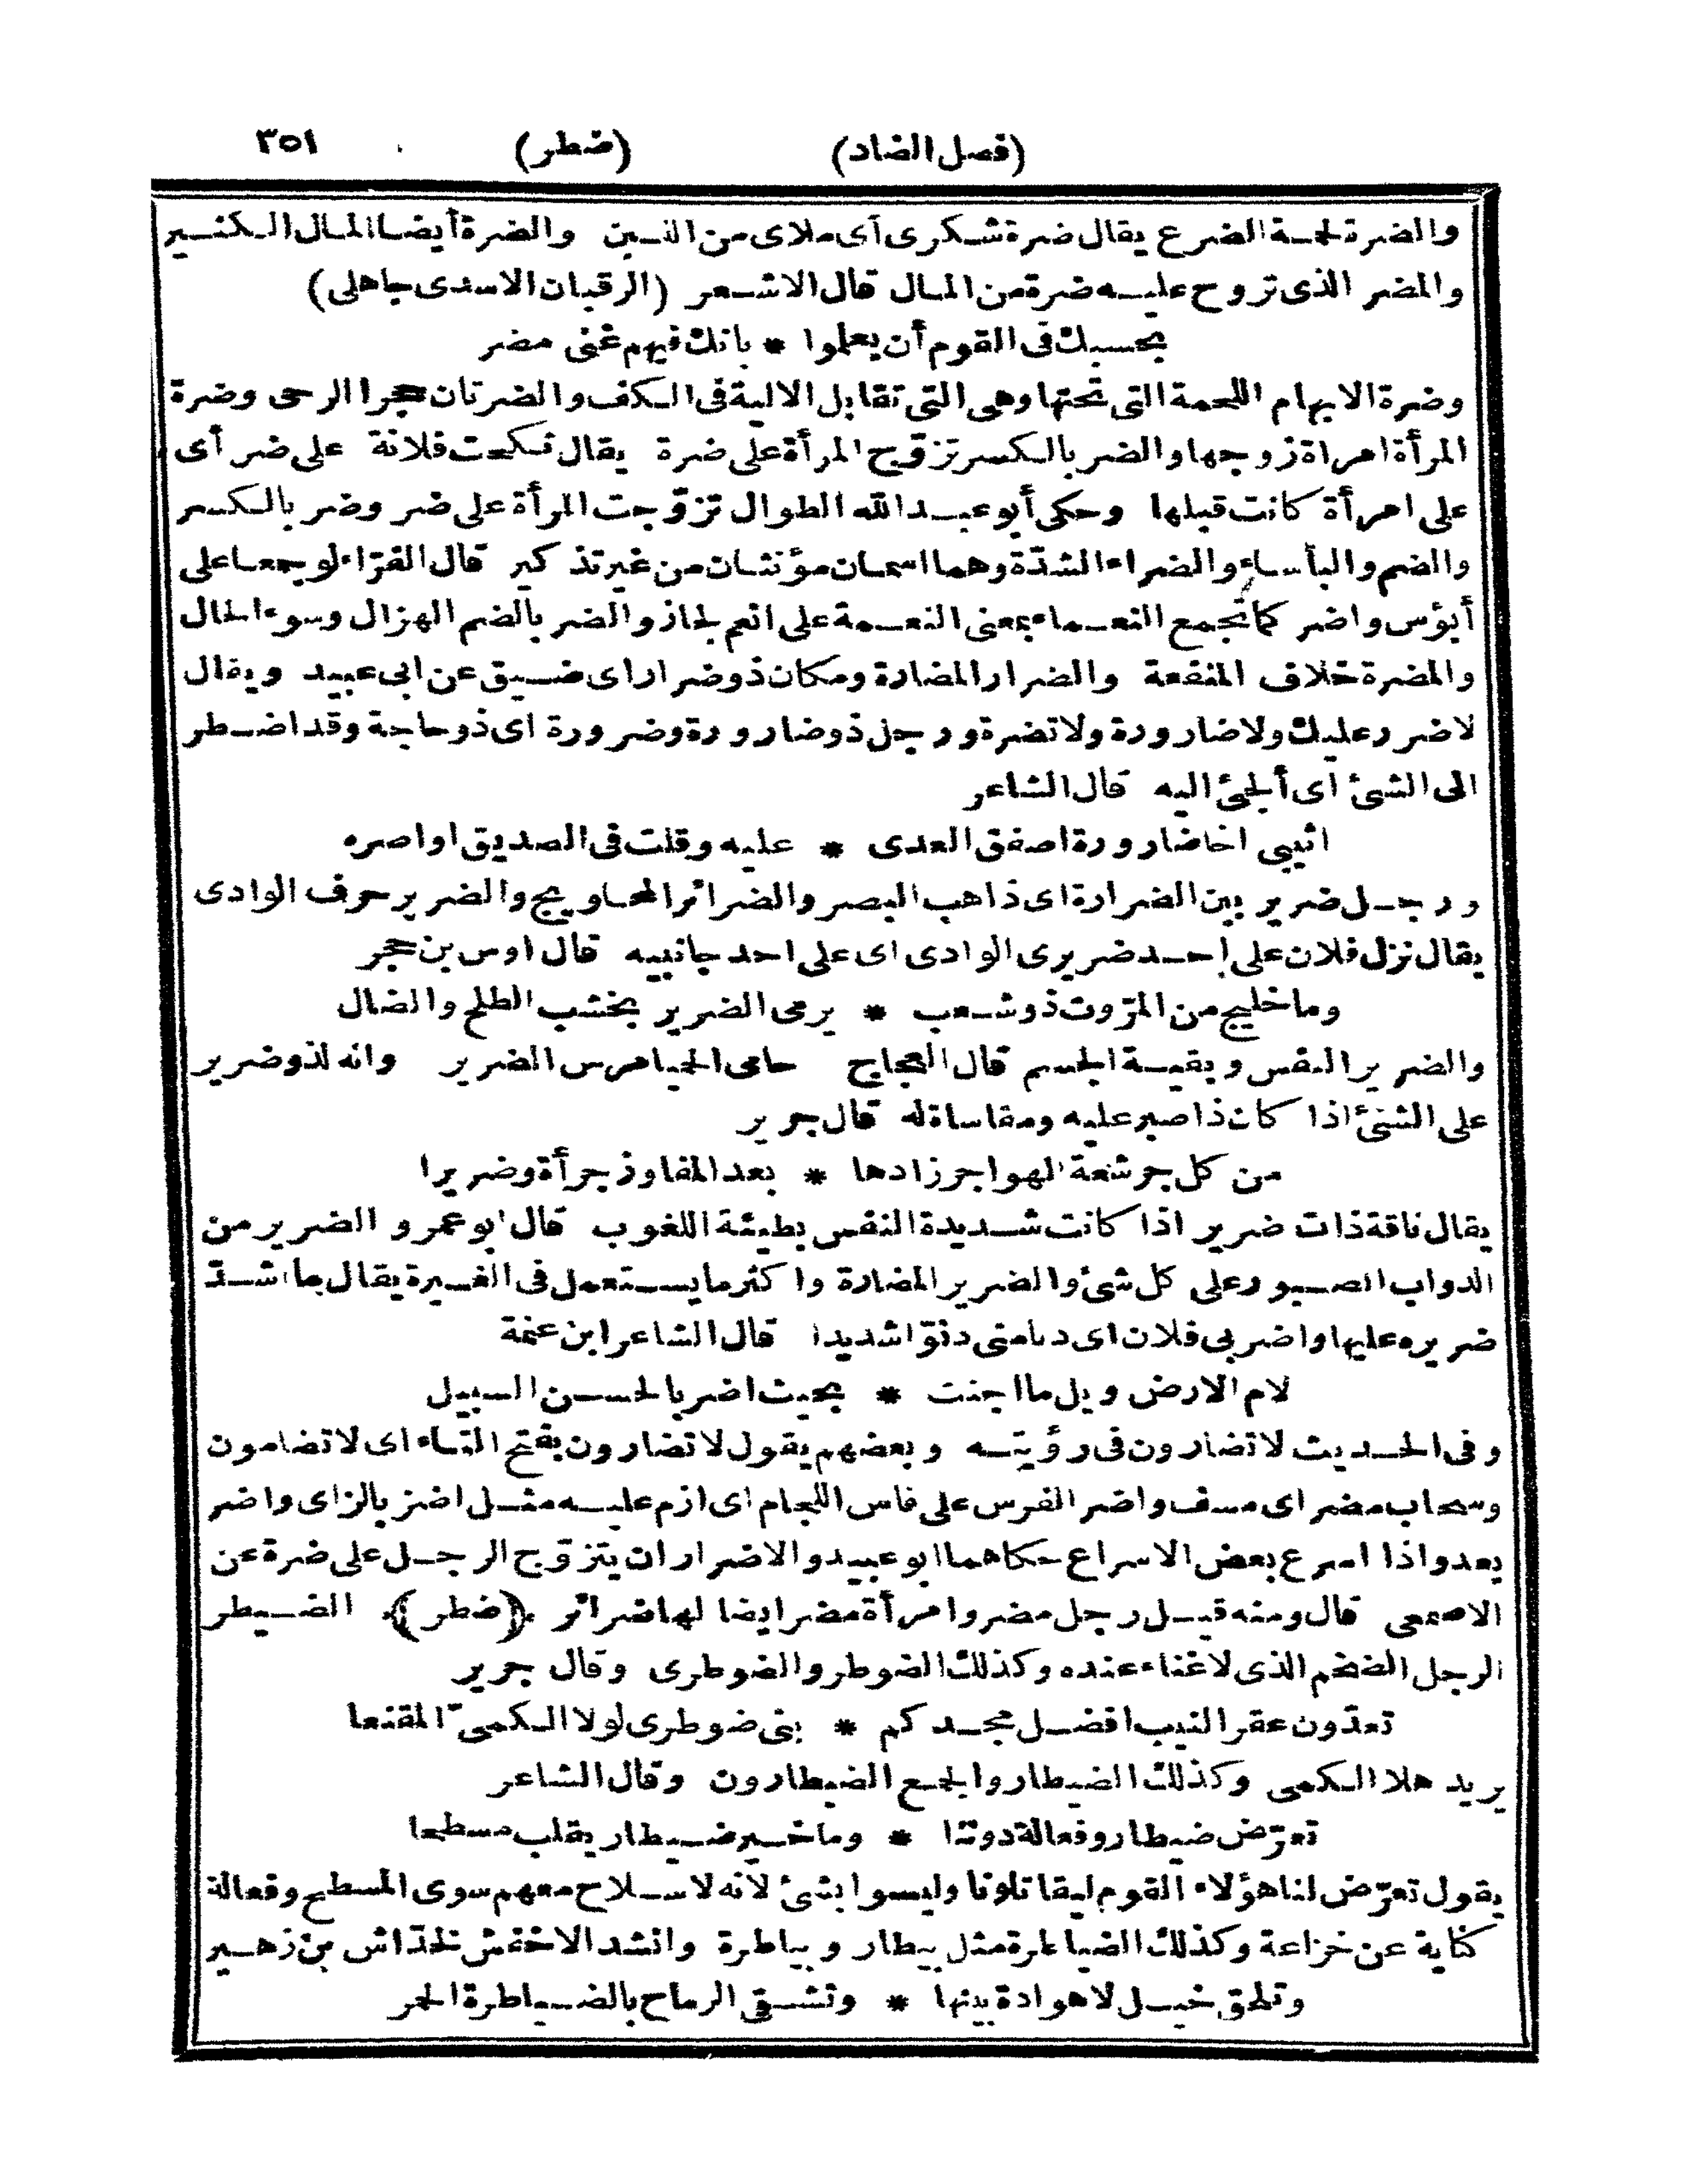 (فصل الضاد) (ضطر) ٣٥١
والضرة لحمة الضرع يقال ضرة شكرى أى ملاى من اللبن والضرة أيضا المال الكثير
والمضر الذى تروح عليه ضرة من المال قال الاشعر (الرقبان الاسدى جاهلى)
بحسبك فى القوم أن يعلموا * بانك فيهم غنى مضر
وضرة الابهام اللحمة التى تحتها وهى التى تقابل الالية فى الكف والضرتان حجرا الرحى وضرة
المرأة امرأة زوجها والضر بالكسر تزوّج المرأة على ضرة يقال نكحت فلانة على ضر أى
على امرأة كانت قبلها وحكى أبو عبد الله الطوال تزوّجت المرأة على ضر وضر بالكسر
والضم والبأساء والضراء الشدّة وهما اسمان مؤنثان من غير تذكير قال الفرّاء لو جمعا على
أبؤس واضر كما تجمع النعماء بمعنى النعمة على انعم لجاز والضر بالضم الهزال وسوء الحال
والمضرة خلاف المنفعة والضرار المضارة ومكان ذو ضرار اى ضيق عن ابى عبيد ويقال
لا ضرر عليك ولا ضارورة ولا تضرة ورجل ذو ضارورة وضرورة اى ذو حاجة وقد اضطر
الى الشئ اى ألجئ اليه قال الشاعر
اثيبى اخا ضارورة اصفق العدى * عليه وقلت فى الصديق اواصره
ورجل ضرير بين الضرارة اى ذاهب البصر والضرائر المحاويج والضرير حرف الوادى
يقال نزل فلان على احد ضريرى الوادى اى على احد جانبيه قال اوس بن حجر
وما خليج من المرّوت ذو شعب * يرمى الضرير بخشب الطلح والضال
والضرير النفس وبقية الجسم قال العجاج حامى الحيا مرس الضرير وانه لذو ضرير
على الشئ اذا كان ذا صبر عليه ومقاساة له قال جرير
من كل جرشعة الهواجر زادها * بعد المفاوز جرأة وضريرا
يقال ناقة ذات ضرير اذا كانت شديدة النفس بطيئة اللغوب قال ابو عمرو الضرير من
الدواب الصبور على كل شئ والضرير المضارة واكثر ما يستعمل فى الغيرة يقال ما اشدّ
ضريره عليها واضر بى فلان اى دنا منى دنوّا شديدا قال الشاعر ابن عنمة
لام الارض ويل ما اجنت * بحيث اضر بالحسن السبيل
وفى الحديث لا تضارون فى رؤيته وبعضهم يقول لا تضارون بفتح التاء اى لا تضامون
وسحاب مضر اى مسف واضر الفرس على فاس اللجام اى ازم عليه مثل اضز بالزاى واضر
يعدو اذا اسرع بعض الاسراع حكاهما ابو عبيد والاضرار ان يتزوّج الرجل على ضرة عن
الاصمعى قال ومنه قيل رجل مضر وامرأة مضر ايضا لها ضرائر ﴿ضطر﴾ الضيطر
الرجل الضخم الذى لا غناء عنده وكذلك الضوطر والضوطرى وقال جرير
تعدّون عقر النيب افضل مجدكم * بنى ضوطرى لولا الكمىّ المقنعا
يريد هلا الكمى وكذلك الضيطار والجمع الضيطارون وقال الشاعر
تعرّض ضيطارو فعالة دوننا * وما خير ضيطار يقلب مسطحا
يقول تعرّض لنا هؤلاء القوم ليقاتلونا وليسوا بشئ لانه لا سلاح معهم سوى المسطح وفعالة
كناية عن خزاعة وكذلك الضياطرة مثل بيطار وبياطرة وانشد الاخفش لخدّاش بن زهير
وتلحق خيل لا هوادة بينها * وتشقى الرماح بالضياطرة الحمر